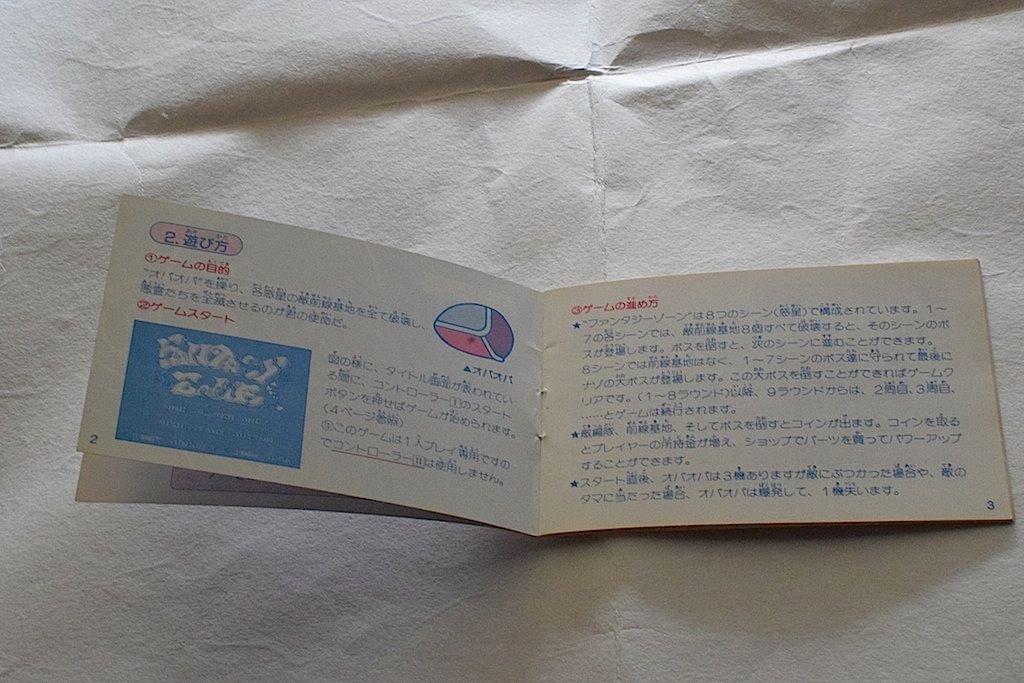 2. 遊び方
①ゲームの目的
"オパオパ"を操り、各惑星の敵前線基地を全て破壊し、
敵軍たちを全滅させるのが君の使命だ。
②ゲームスタート
▲オパオパ
図の様に、タイトル画面が表われてい
る間に、コントローラーⅠのスタート
ボタンを押せばゲームが始められます。
(4ページ参照)
※このゲームは1人プレイ専用ですの
でコントローラーⅡは使用しません。
2
③ゲームの進め方
★"ファンタジーゾーン"は8つのシーン(惑星)で構成されています。1〜
7の各シーンでは、敵前線基地8個すべて破壊すると、そのシーンのボ
スが登場します。ボスを倒すと、次のシーンに進むことができます。
8シーンでは前線基地はなく、1〜7シーンのボス達に守られて最後に
ナゾの大ボスが登場します。この大ボスを倒すことができればゲームク
リアです。(1〜8ラウンド)以降、9ラウンドからは、2周目、3周目、
……とゲームは続行されます。
★敵編隊、前線基地、そしてボスを倒すとコインが出ます。コインを取る
とプレイヤーの所持金が増え、ショップでパーツを買ってパワーアップ
することができます。
★スタート直後、オパオパは3機ありますが敵にぶつかった場合や、敵の
タマに当たった場合、オパオパは爆発して、1機失います。
3